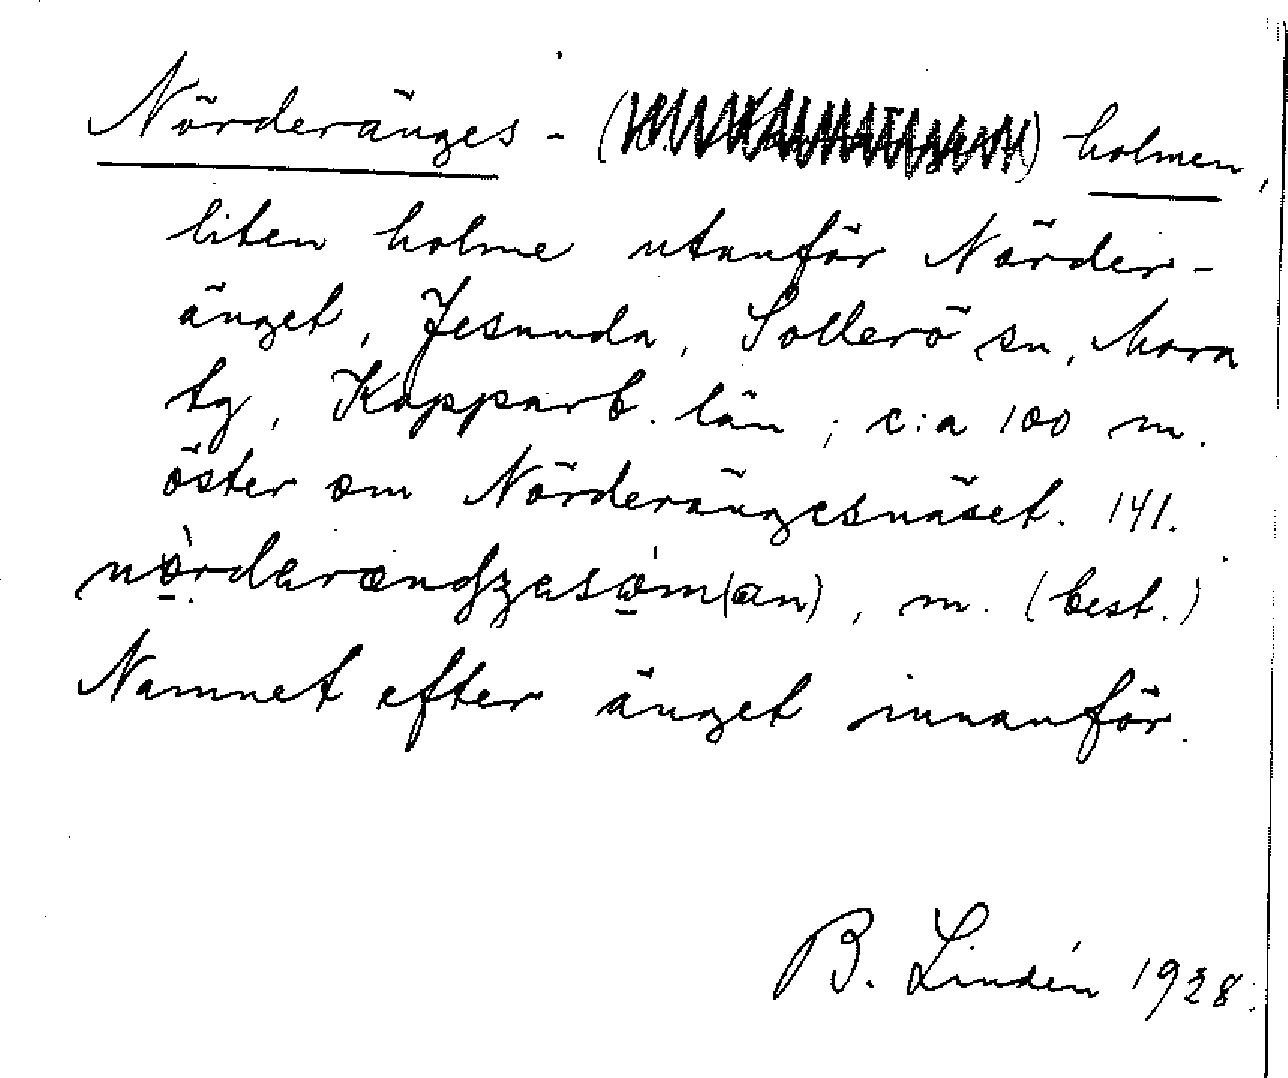 Nörderänges - ( ) holmen,
liten holme utanför Nörder-
änget, Gesunda, Sollerö sn, Mora
tg, Kopparb. län; c:a 100 m.
öster om Nörderängesnäset. 141.
, m. (best.)
Namnet efter änget innanför.
B. Lindén 1928.